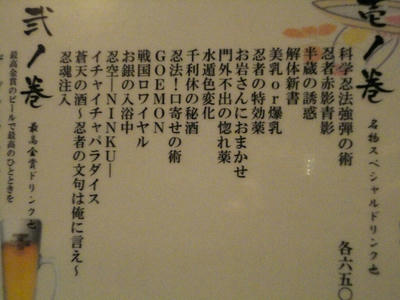 壱ノ巻
名物スペシャルドリンク也
各六五〇
科学忍法強弾の術
忍者赤影青影
半蔵の誘惑
解体新書
美乳or爆乳
忍者の特効薬
お岩さんにおまかせ
門外不出の惚れ薬
水遁色変化
千利休の秘酒
忍法！口寄せの術
GOEMON
戦国ロワイヤル
お銀の入浴中
忍空―NINKU―
イチャイチャパラダイス
蒼天の酒～忍者の文句は俺に言え～
忍魂注入
弐ノ巻
最高金賞ドリンク也
最高金賞のビールで最高のひとときを